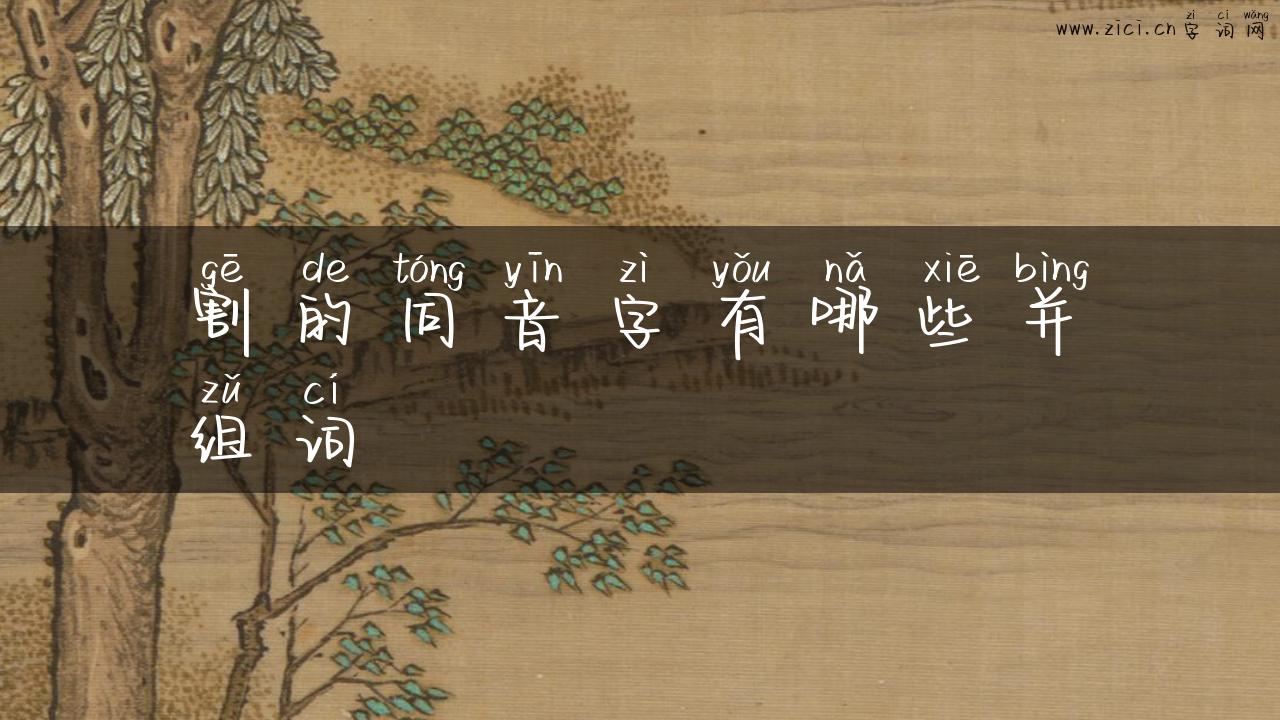 zì cí wǎng
www.zici.cn 字词网
gē de tóng yīn zì yǒu nǎ xiē bìng
割的同音字有哪些并
zǔ cí
组词